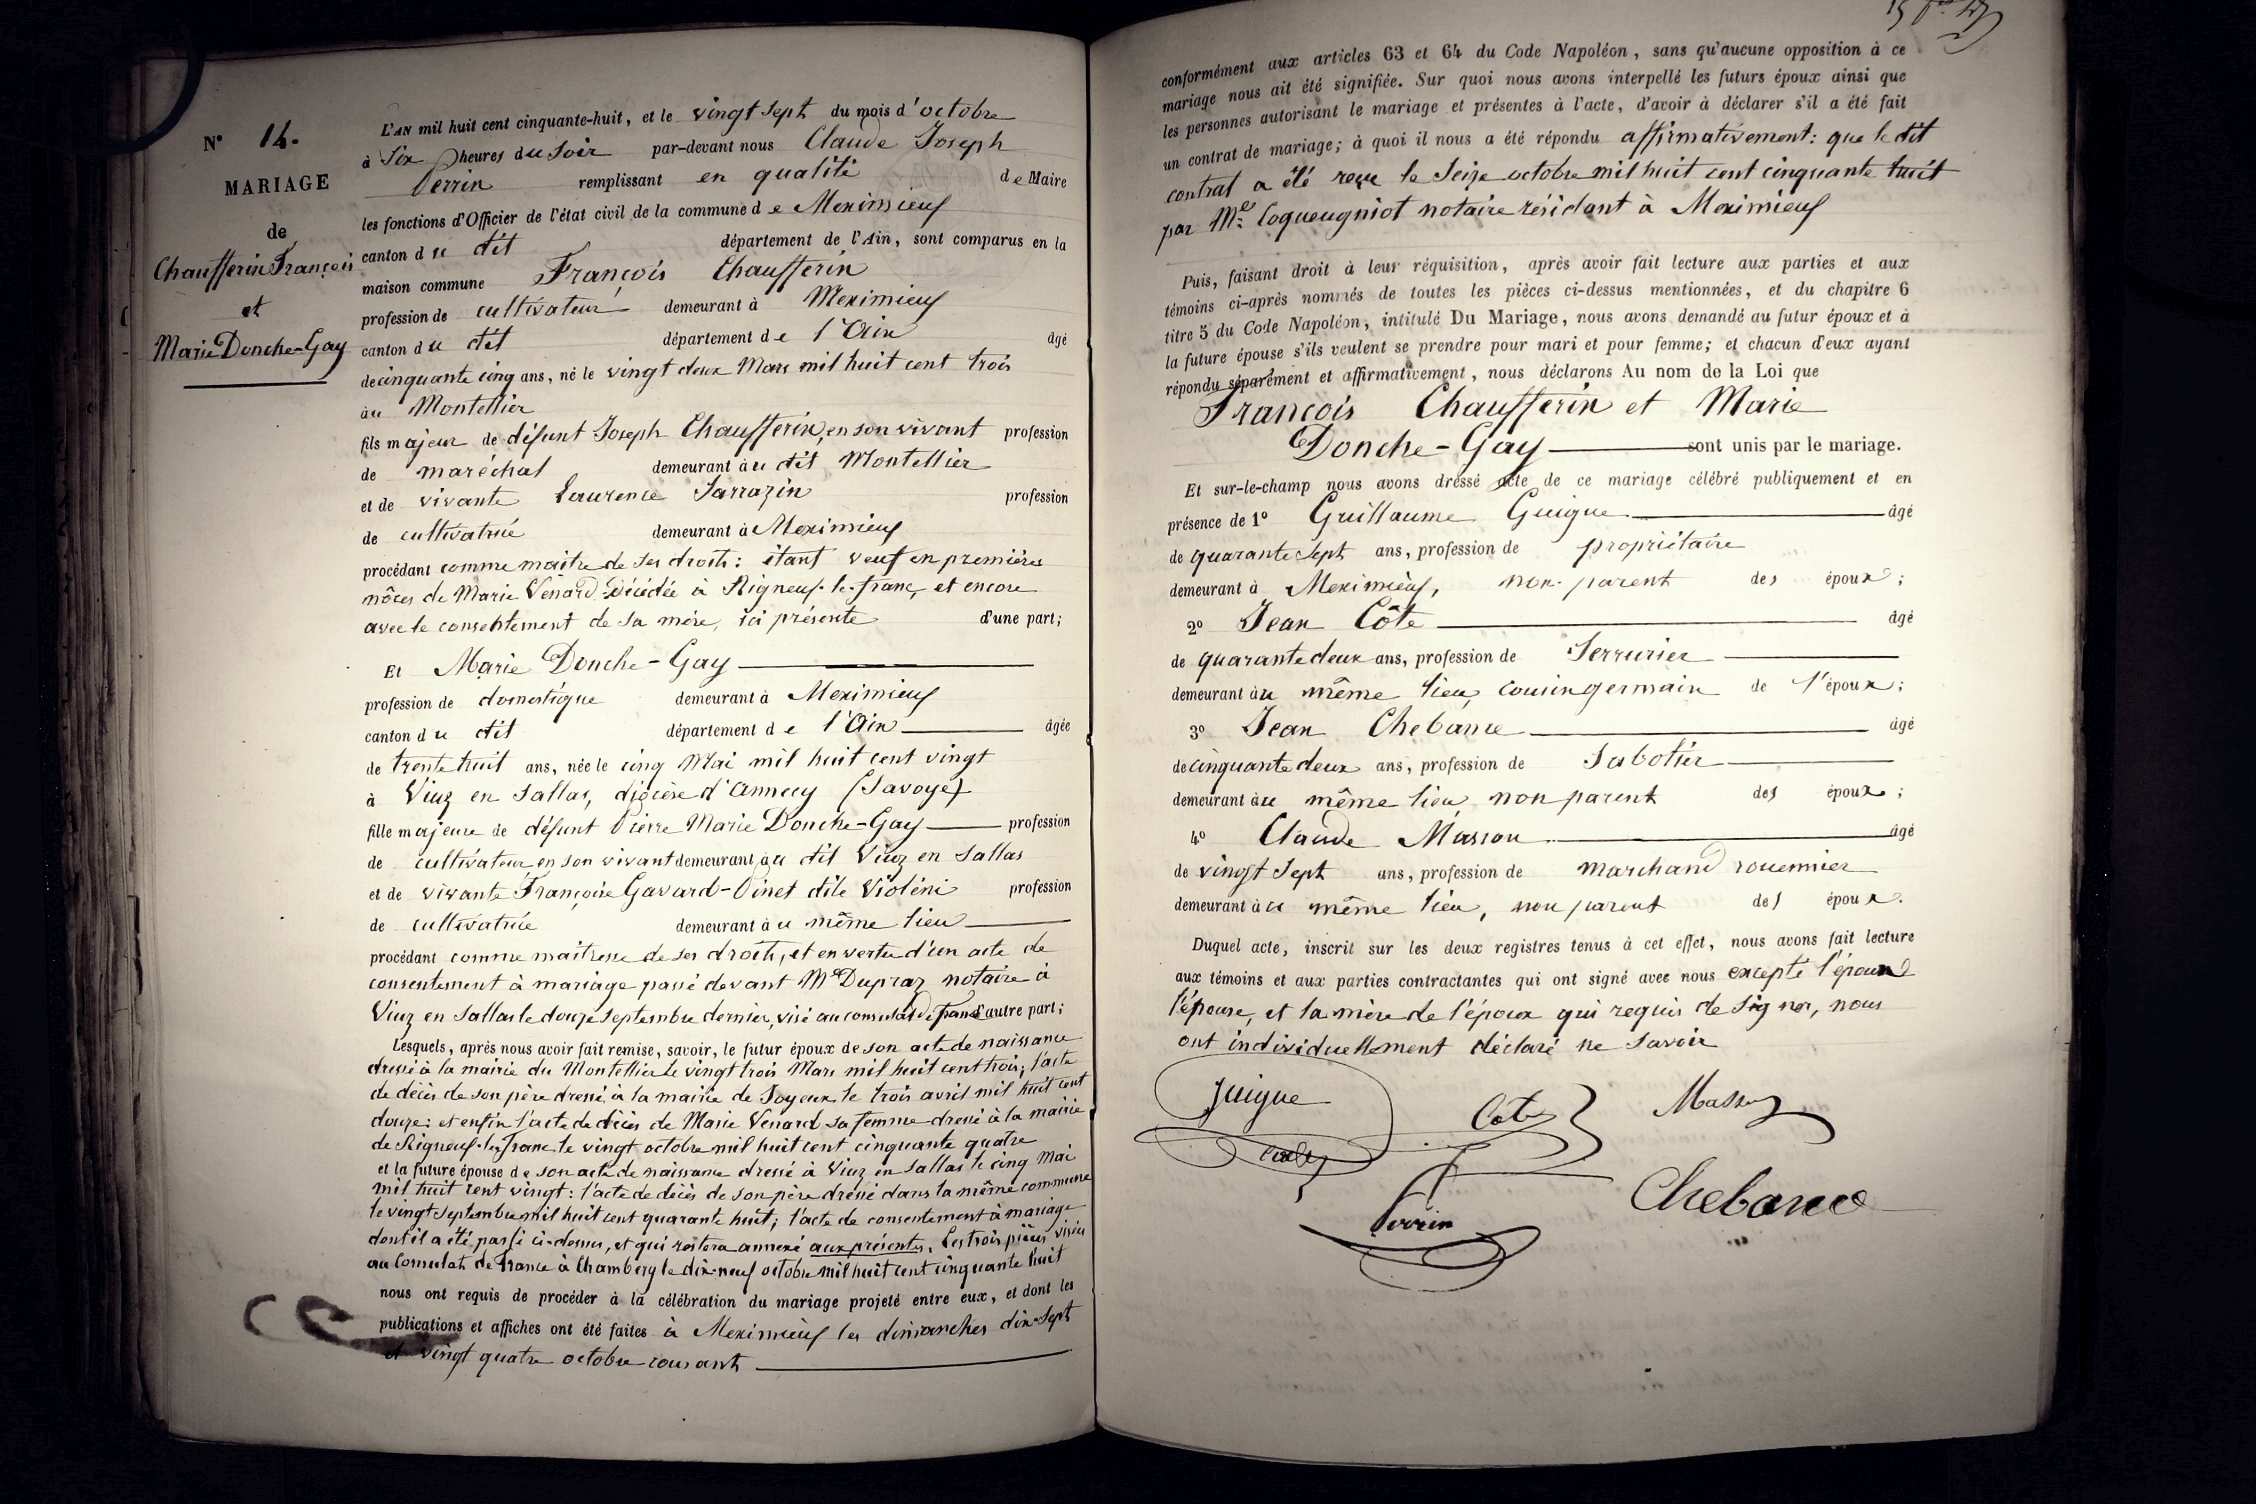 N° 14.
MARIAGE
de
Chaufferin François
et
Marie Donche-Gay
L'AN mil huit cent cinquante-huit, et le vingt sept du mois d'octobre
à Six heures du Soir par-devant nous Claude Joseph
Perrin remplissant en qualité de Maire
les fonctions d'Officier de l'état civil de la commune de Meximieux
canton du dit département de l'Ain, sont comparus en la
maison commune François Chaufferin
profession de cultivateur demeurant à Meximieux
canton du dit département de l'Ain âgé
de cinquante cinq ans, né le vingt deux Mars mil huit cent trois
au Montellier
fils majeur de défunt Joseph Chaufferin, en son vivant profession
de maréchal demeurant au dit Montellier
et de vivante Laurence Sarrazin profession
de cultivatrice demeurant à Meximieux
procédant comme maître de ses droits: étant veuf en premières
nôces de Marie Venard décédée à Rigneux-le-franc, et encore
avec le consentement de sa mère, ici présente d'une part;
Et Marie Donche-Gay
profession de domestique demeurant à Meximieux
canton du dit département de l'Ain âgée
de trente huit ans, née le cinq Mai mil huit cent vingt
à Viuz en Sallaz, diocèse d'Annecy (Savoye)
fille majeure de défunt Pierre Marie Donche-Gay profession
de cultivateur en son vivant demeurant au dit Viuz en Sallaz
et de vivante Françoise Gavard-Pinet dite Violéni profession
de cultivatrice demeurant au même lieu
procédant comme maitresse de ses droits, et en vertu d'un acte de
consentement à mariage passé devant Me Dupraz notaire à
Viuz en Sallaz le douze septembre dernier, visé au consulat de france d'autre part;
Lesquels, après nous avoir fait remise, savoir, le futur époux de son acte de naissance
dressé à la mairie du Montellier le vingt trois Mars mil huit cent trois; l'acte
de décès de son père dressé à la mairie de Joyeux le trois avril mil huit cent
douze: et enfin l'acte de décès de Marie Venard sa femme dressé à la mairie
de Rigneux-le-franc le vingt octobre mil huit cent cinquante quatre
et la future épouse de son acte de naissance dressé à Viuz en Sallaz le cinq Mai
mil huit cent vingt: l'acte de décès de son père dressé dans la même commune
le vingt septembre mil huit cent quarante huit; l'acte de consentement à mariage
dont il a été parlé ci-dessus, et qui restera annexé aux présentes. Les trois pièces visées
au Consulat de France à Chambéry le dix-neuf octobre mil huit cent cinquante huit
nous ont requis de procéder à la célébration du mariage projeté entre eux, et dont les
publications et affiches ont été faites à Meximieux les dimanches dix-sept
et vingt quatre octobre courant
conformément aux articles 63 et 64 du Code Napoléon, sans qu'aucune opposition à ce
mariage nous ait été signifiée. Sur quoi nous avons interpellé les futurs époux ainsi que
les personnes autorisant le mariage et présentes à l'acte, d'avoir à déclarer s'il a été fait
un contrat de mariage; à quoi il nous a été répondu affirmativement: que le dit
contrat a été reçu le Seize octobre mil huit cent cinquante huit
par Me Coqueugniot notaire résidant à Meximieux
Puis, faisant droit à leur réquisition, après avoir fait lecture aux parties et aux
témoins ci-après nommés de toutes les pièces ci-dessus mentionnées, et du chapitre 6
titre 5 du Code Napoléon, intitulé Du Mariage, nous avons demandé au futur époux et à
la future épouse s'ils veulent se prendre pour mari et pour femme; et chacun d'eux ayant
répondu séparément et affirmativement, nous déclarons Au nom de la Loi que
François Chaufferin et Marie
Donche-Gay sont unis par le mariage.
Et sur-le-champ nous avons dressé acte de ce mariage célébré publiquement et en
présence de 1° Guillaume Guigue âgé
de quarante sept ans, profession de propriétaire
demeurant à Meximieux, non parent des époux;
2° Jean Côte âgé
de quarante deux ans, profession de Serrurier
demeurant au même lieu, cousin germain de l'époux;
3° Jean Chebance âgé
de cinquante deux ans, profession de Sabotier
demeurant au même lieu non parent des époux;
4° Claude Masson âgé
de vingt sept ans, profession de marchand rouennier
demeurant au même lieu, non parent des époux.
Duquel acte, inscrit sur les deux registres tenus à cet effet, nous avons fait lecture
aux témoins et aux parties contractantes qui ont signé avec nous excepté l'époux
l'épouse, et la mère de l'époux qui requis de signer, nous
ont individuellement déclaré ne savoir
Guigue
Cote
Masson
Perrin
Chebance